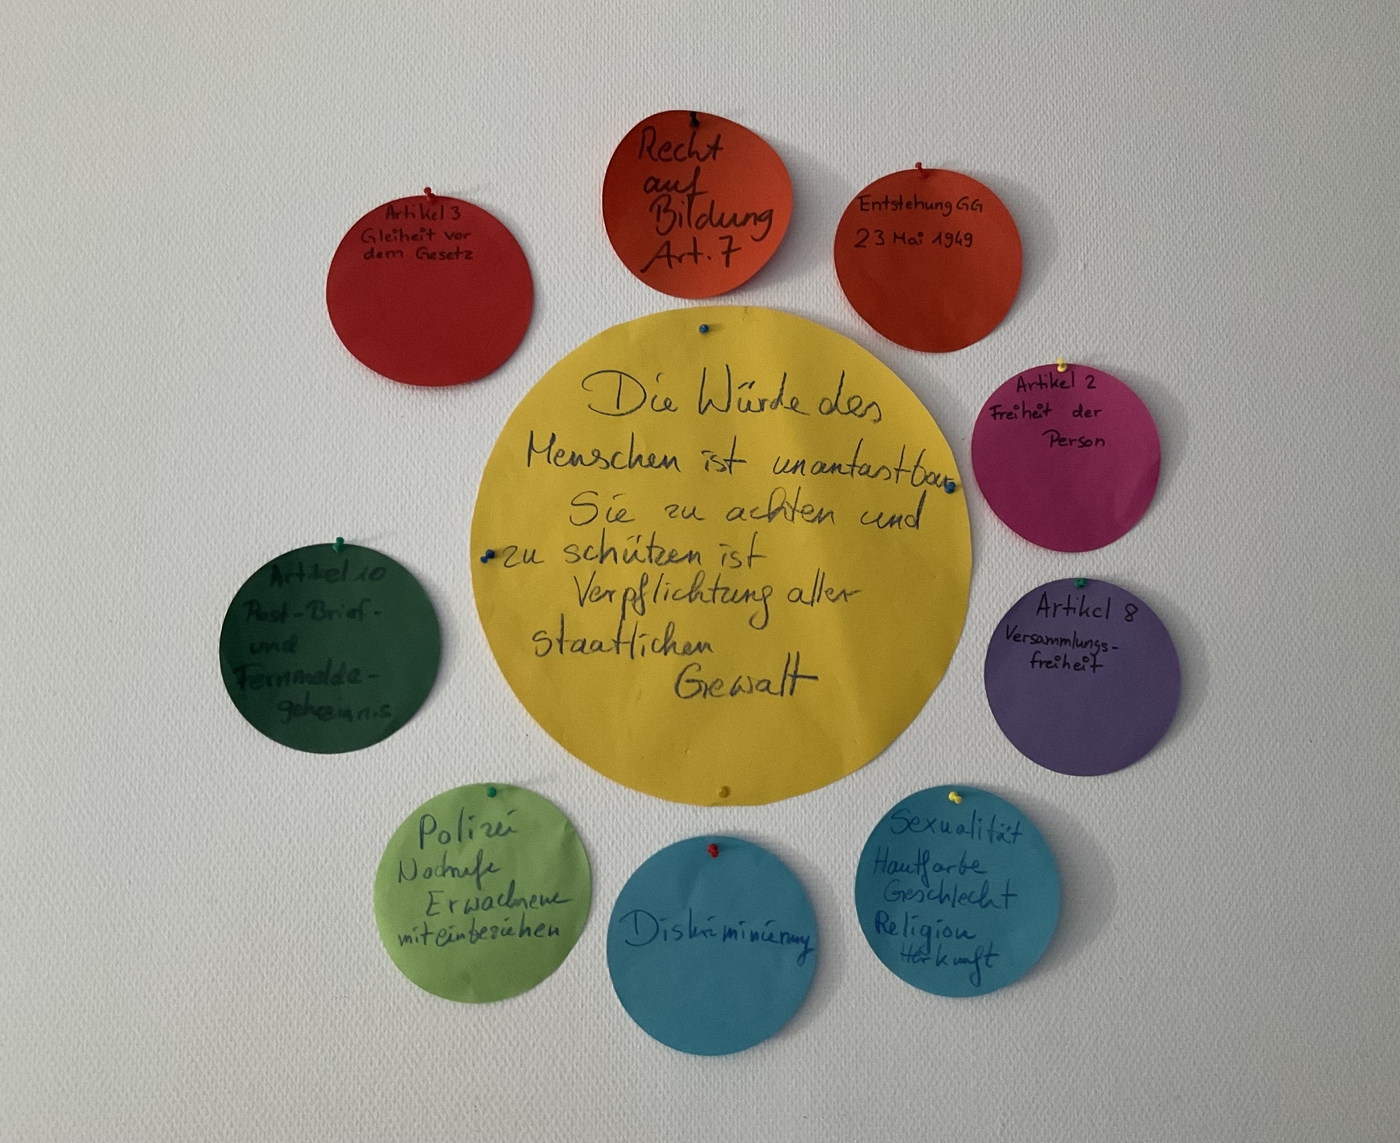 Recht
auf
Bildung
Art. 7
Entstehung GG
23 Mai 1949
Artikel 3
Gleiheit vor
dem Gesetz
Artikel 2
Freiheit der
Person
Die Würde des
Menschen ist unantastbar
Sie zu achten und
zu schützen ist
Verpflichtung aller
staatlichen
Gewalt
Artikel 10
Post-Brief-
und
Fernmelde-
geheimnis
Artikel 8
Versammlungs-
freiheit
Polizei
Nachrufe
Erwachsene
miteinbeziehen
Diskriminierung
Sexualität
Hautfarbe
Geschlecht
Religion
Herkunft